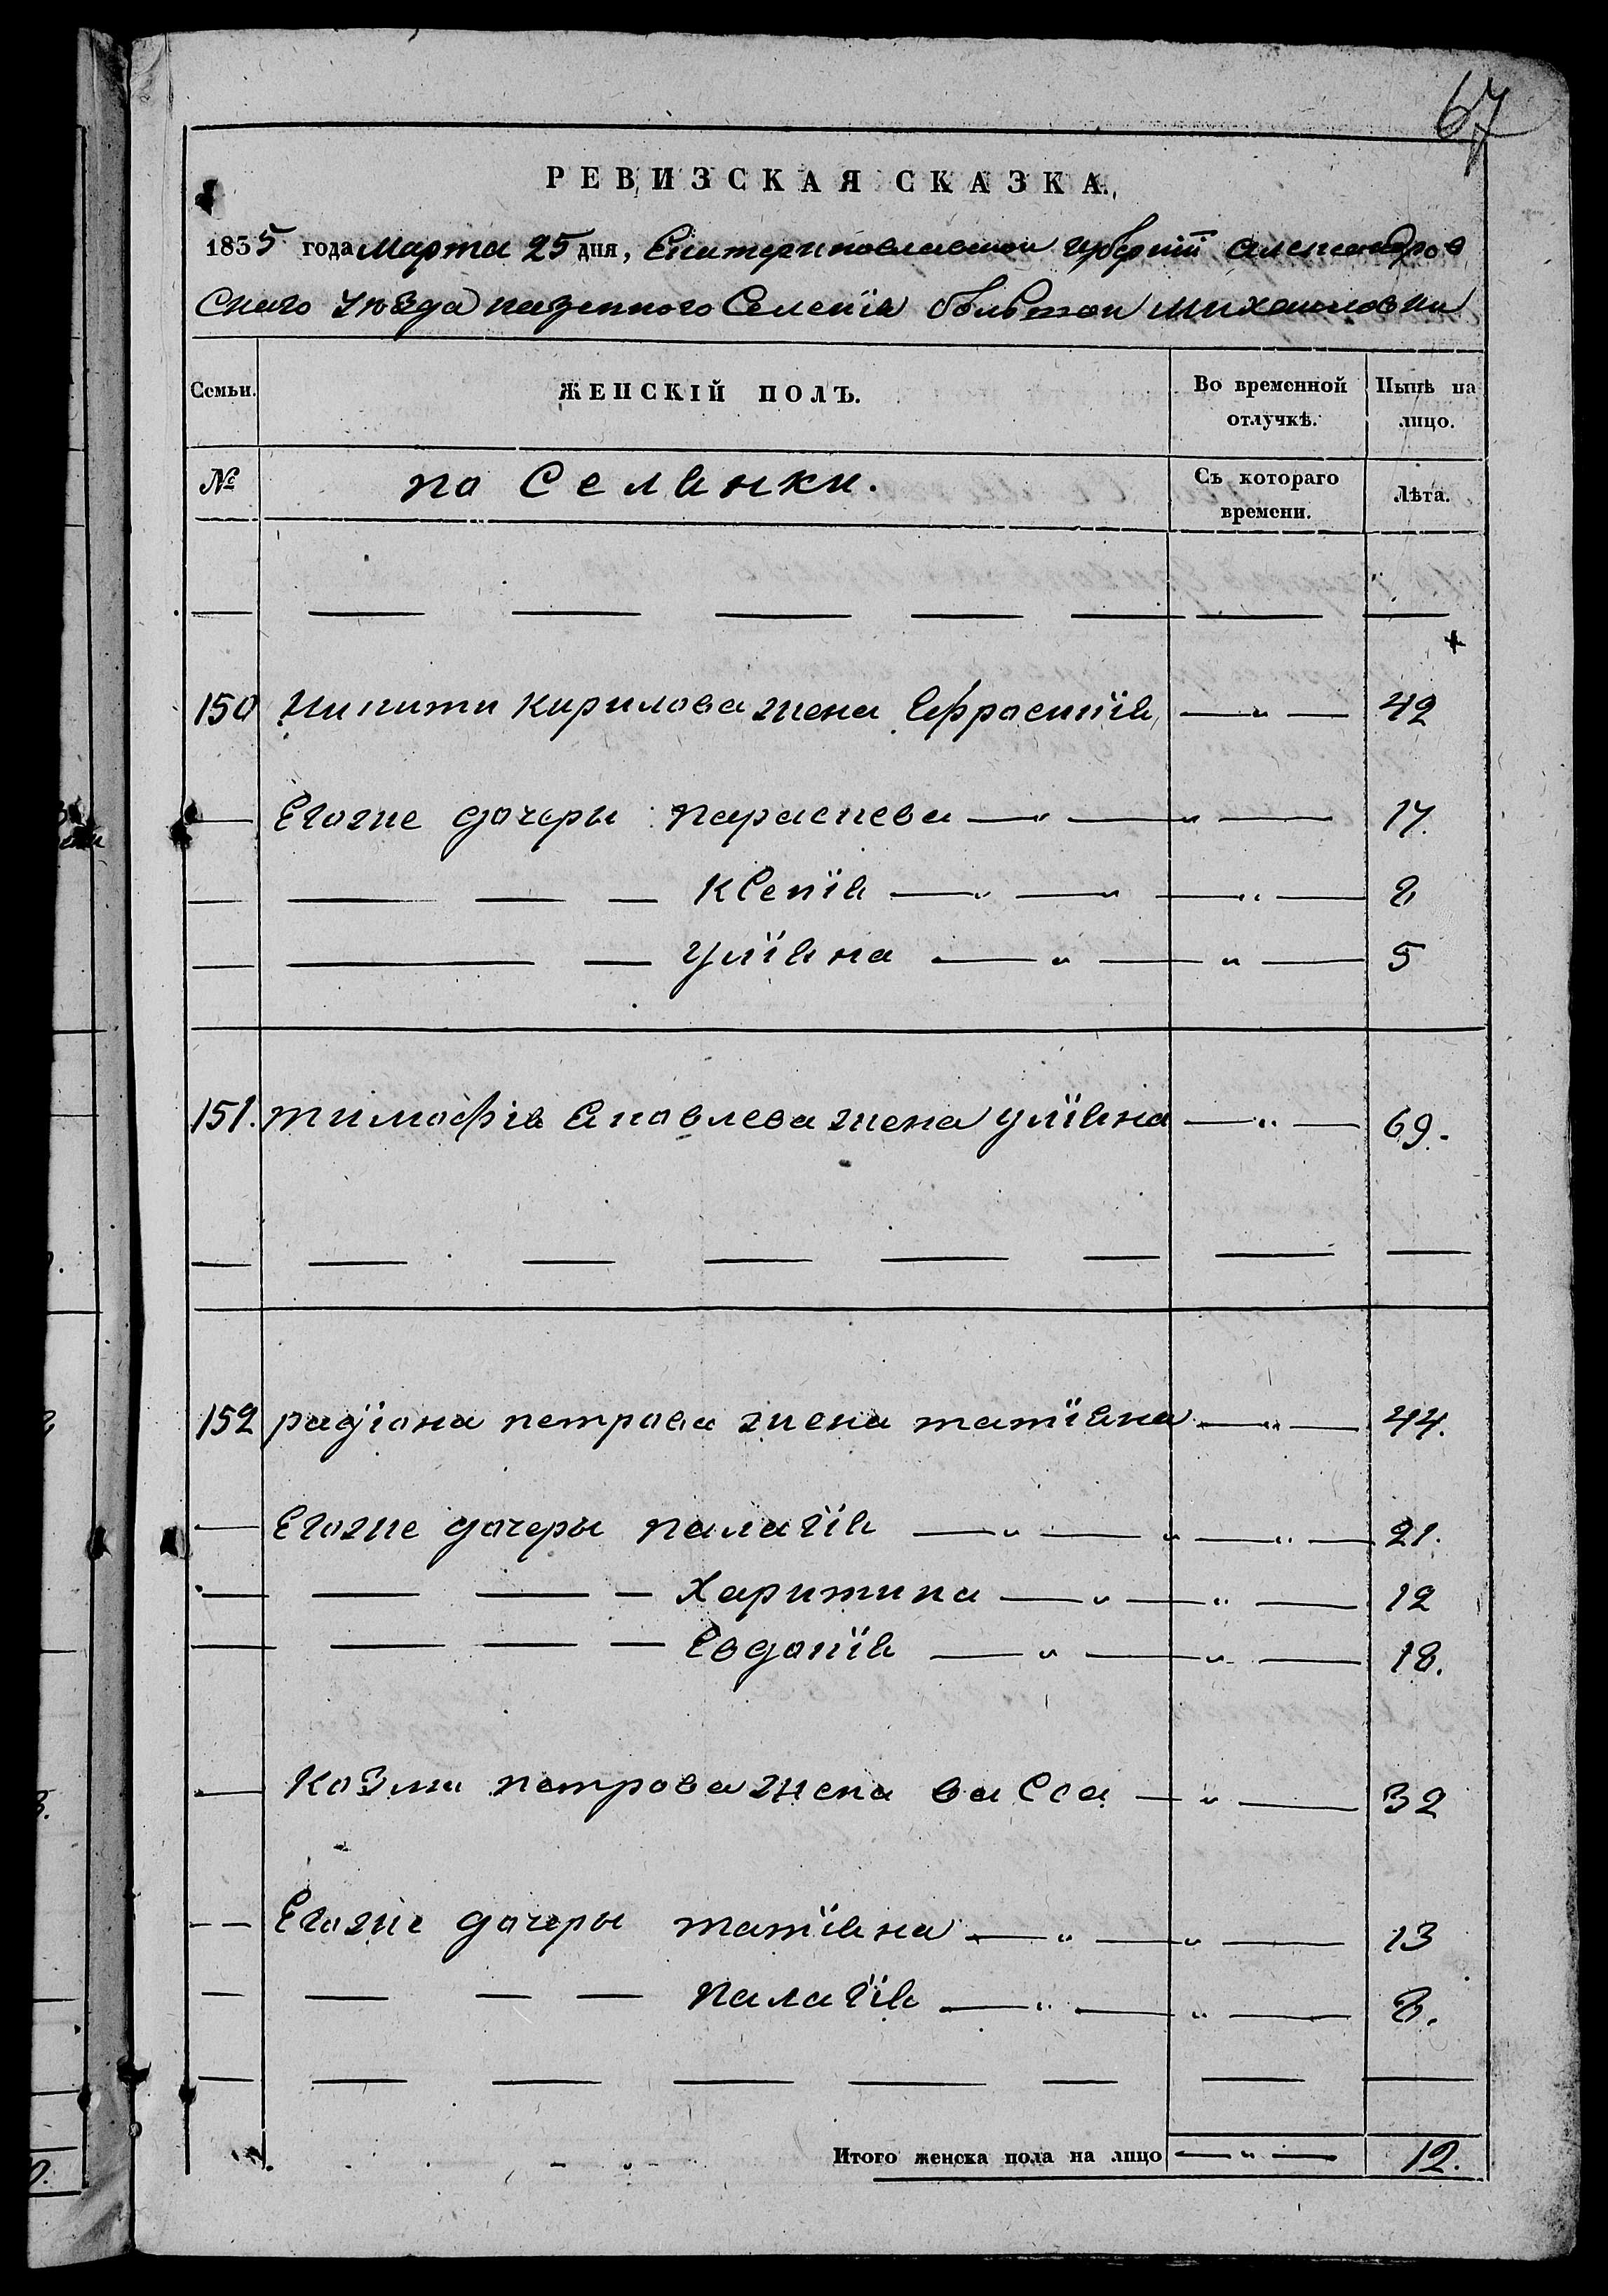 67
РЕВИЗСКАЯ СКАЗКА.
1835 года марта 25 дня, Екатериновлавской губернiи александров
скаго уѣзда казенного Селенiя болшой михаиловки
Семьи. ЖЕНСКІЙ ПОЛЪ. Во временной отлучкѣ. Нынѣ на лицо.
№ поселянки. Съ котораго времени. Лѣта.
150 Никити кирилова жена Ефросинiя — „ — 42
— Егоже дочеры параскева — „ — „ — 17.
— — — — Ксенiя — „ — „ — „ — 8
— — — Улiяна — „ — „ — 5
151. тимофiя Яковлева жена улiяна — „ — 69.
152 радiона петрова жена татiяна — „ — 44.
— Егоже дочеры палагiя — „ — „ — „ — 21.
— — — — Харитина — „ — „ — 12
— — — — Евдокiя — „ — „ — 18.
— Козми петрова жена васса — „ — 32
— — Егоже дочеры татiяна — „ — „ — 13
— — — — палагiя — „ — „ — 8.
Итого женска пола на лицо — „ — 12.